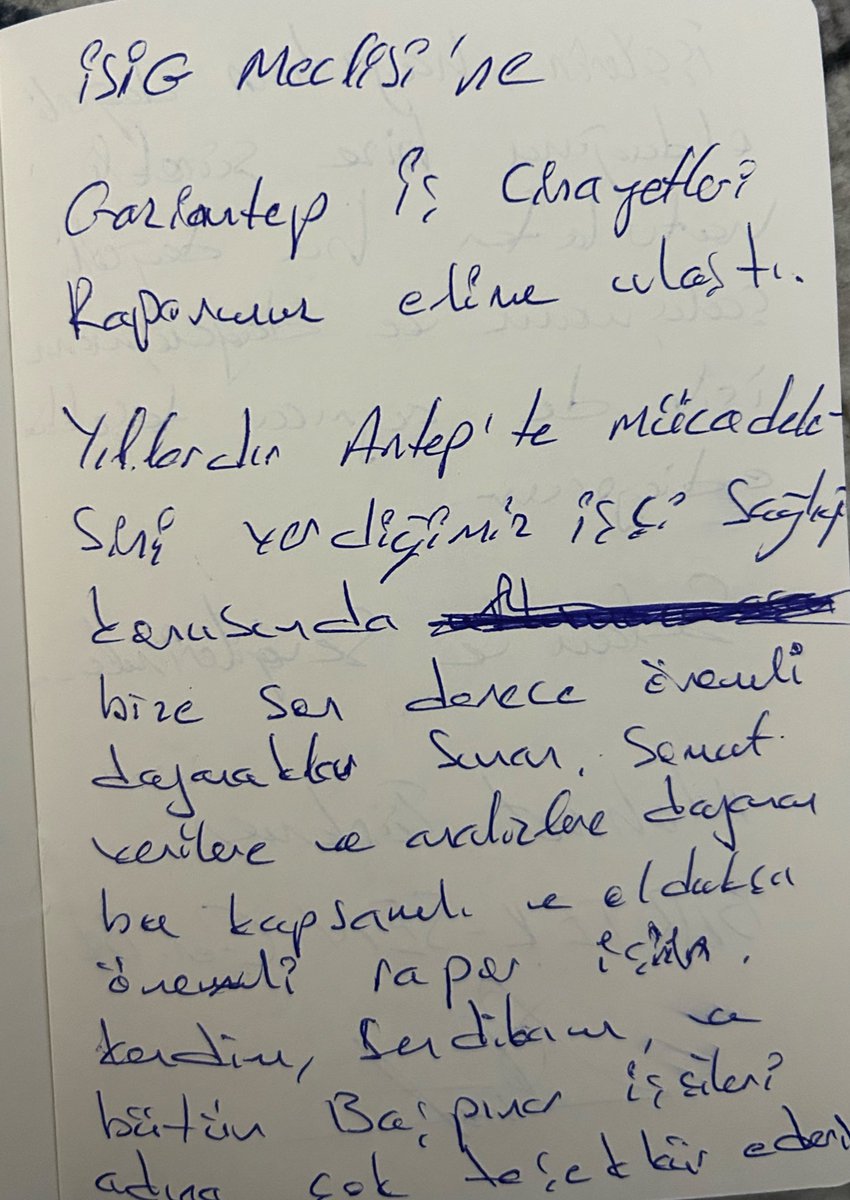 İSİG Meclisi'ne
Gaziantep İş Cinayetleri
Raporunuz elime ulaştı.
Yıllardır Antep'te mücadele-
sini verdiğimiz işçi sağlığı
konusunda
bize son derece önemli
dayanaklar sunan, somut
verilere ve analizlere dayanan
bu kapsamlı ve oldukça
önemli rapor için,
kendim, sendikam, ve
bütün Başpınar işçileri
adına çok teşekkür ederi